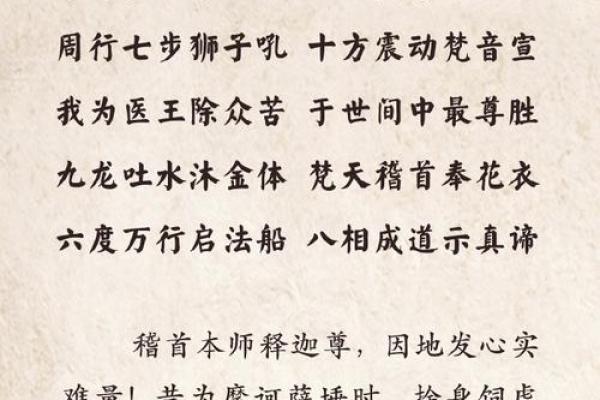 周行七步狮子吼 十方震动梵音宣
我为医王除众苦 于世间中最尊胜
九龙吐水沐金体 梵天稽首奉花衣
六度万行启法船 八相成道示真谛
稽首本师释迦尊，因地发心实
难量！昔为摩诃萨埵时，捨身饲虎